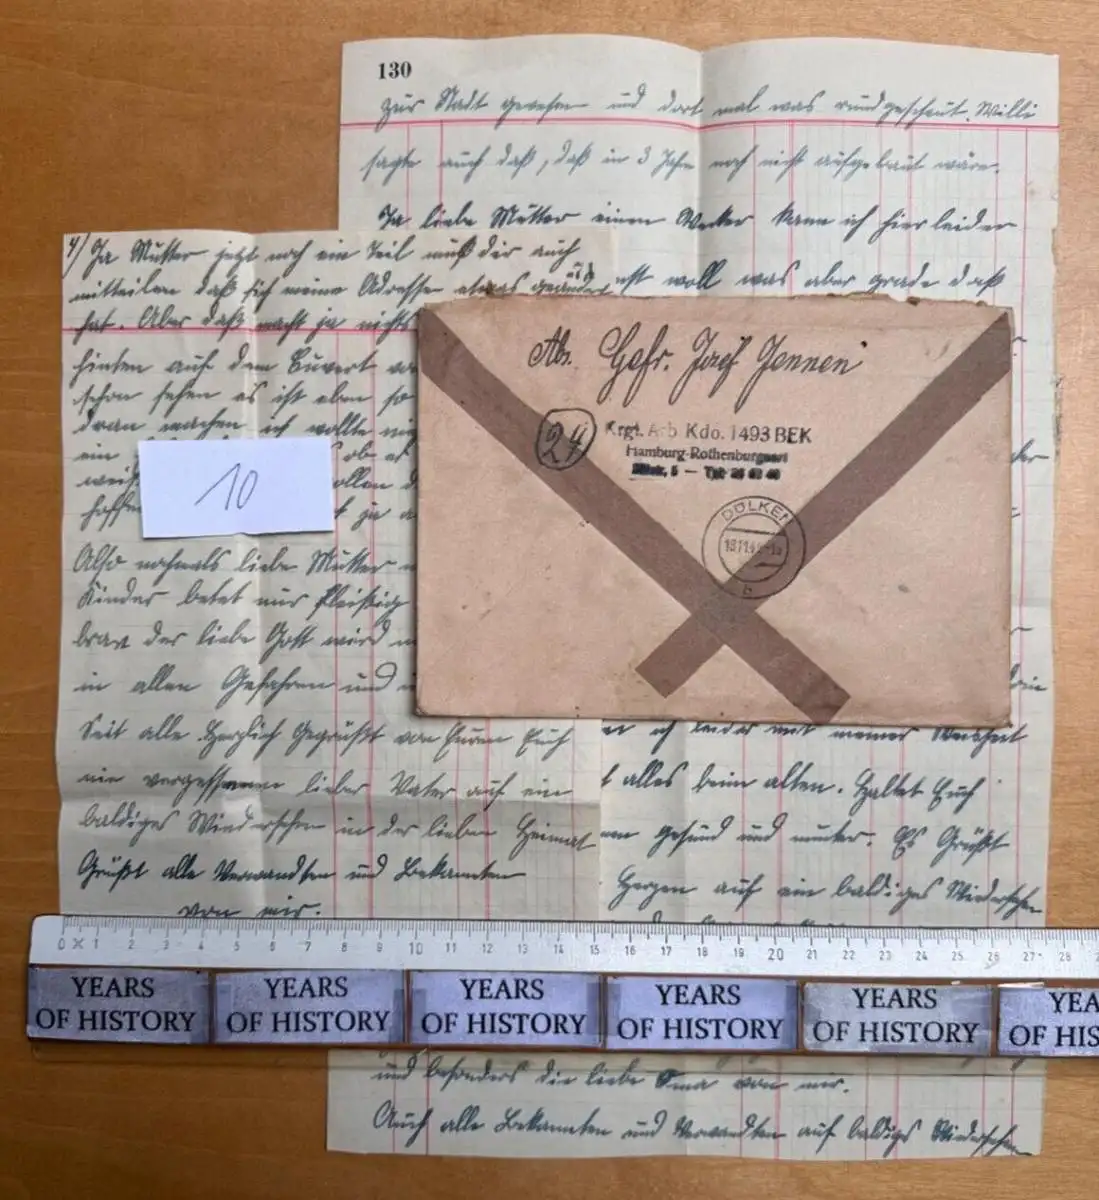 130
zur Stadt gewesen und dort mal was rumgeschaut. Willi
sagte auch daß, daß in 3 Jahr noch nicht aufgebaut wäre.
Ja liebe Mutter einen Wecker kann ich hier leider
woll was aber grade daß
4) Ja Mutter jetzt noch ein Teil muß dir auch
mitteilen daß sich meine Adresse etwas geändert
hat. Aber daß macht ja nichts
hinten auf dem Cuvert
schon sehen es ist eben so
dran machen ich wollte
ein ob es
hoffen
Also nochmals liebe Mutter
Kinder betet nur fleißig
brav der liebe Gott wird
in allen Gefahren und
Seit alle Herzlich Gegrüßt von Euren Euch
nie vergessenen lieber Vater auf ein
baldiges Wiedersehen in der lieben Heimat
Grüßt alle Verwandten und Bekannten
von mir.
10
Abs. Gefr. Josef Jennen
24
Krgf. Arb. Kdo. 1493 BEK
Hamburg-Rothenburgsort
DÜLKEN
b
ich leider mit meiner Weisheit
alles beim alten. Haltet Euch
gesund und munter. Es Grüßt
Herzen auf ein baldiges Wiedersehen
0 1 2 3 4 5 6 7 8 9 10 11 12 13 14 15 16 17 18 19 20 21 22 23 24 25 26 27 28
YEARS OF HISTORY
YEARS OF HISTORY
YEARS OF HISTORY
YEARS OF HISTORY
YEARS OF HISTORY
YEA
OF HIS
und besonders die liebe Oma von mir.
Auch alle Bekannten und Verwandten auf baldiges Wiedersehen